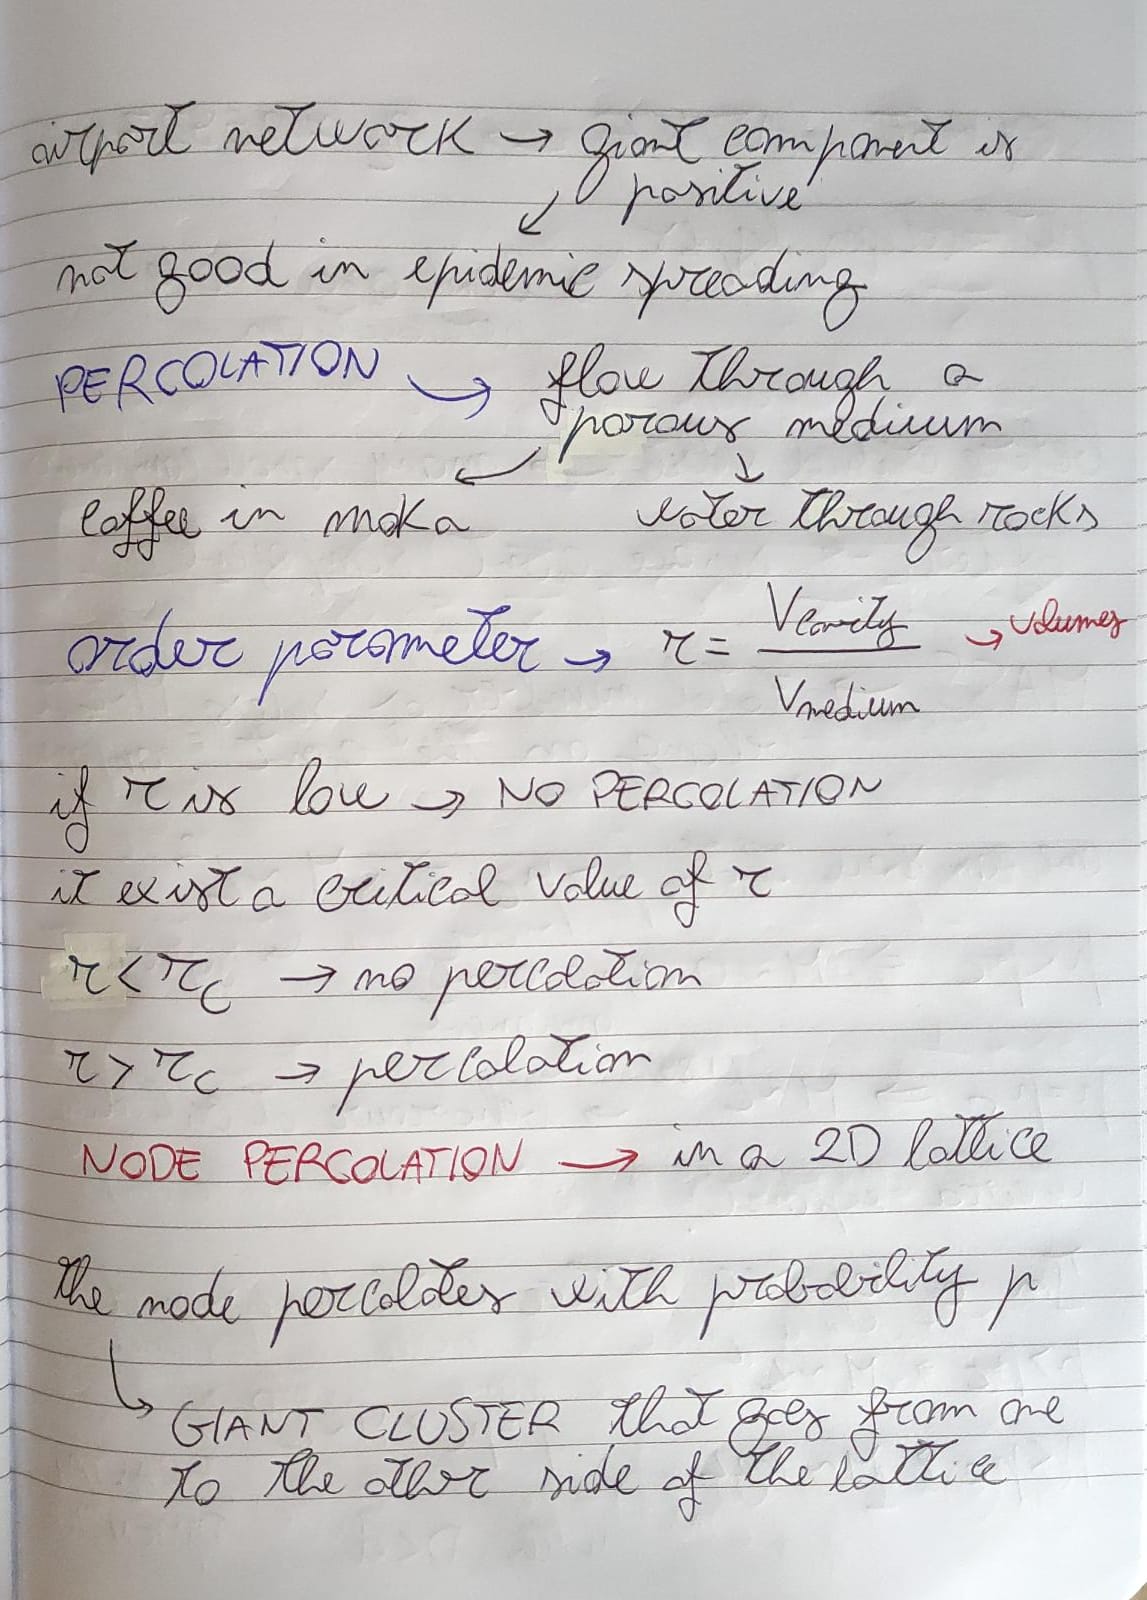 airport network → giant component is
positive
not good in epidemic spreading
PERCOLATION → flow through a
porous medium
coffee in moka water through rocks
order parameter → r = Vcavity / Vmedium → volumes
if r is low → NO PERCOLATION
it exist a critical value of r
r < rc → no percolation
r > rc → percolation
NODE PERCOLATION → in a 2D lattice
the node percolates with probability p
GIANT CLUSTER that goes from one
to the other side of the lattice